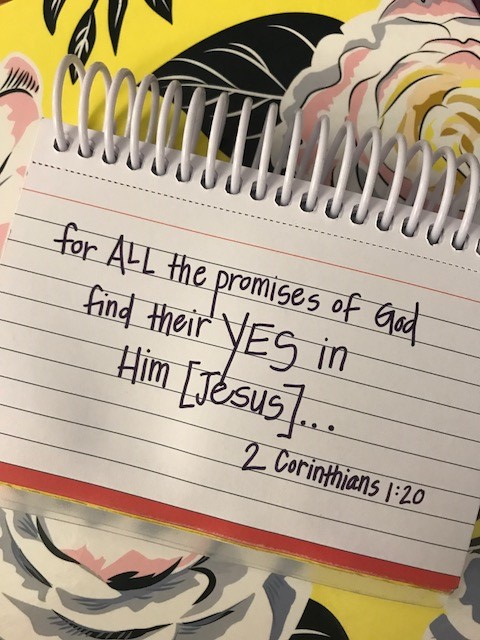 for ALL the promises of God
find their YES in
Him [Jesus]...
2 Corinthians 1:20